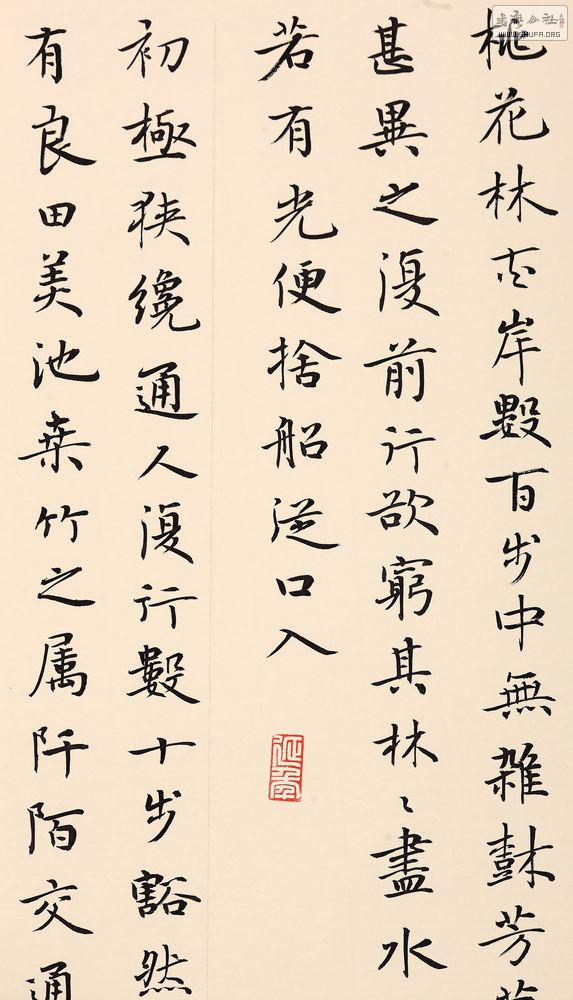 桃花林夹岸數百步中無雜樹芳草
甚異之復前行欲窮其林〻盡水
若有光便捨船從口入
初極狹纔通人復行數十步豁然
有良田美池桑竹之属阡陌交通
WWW.SHUFA.ORG